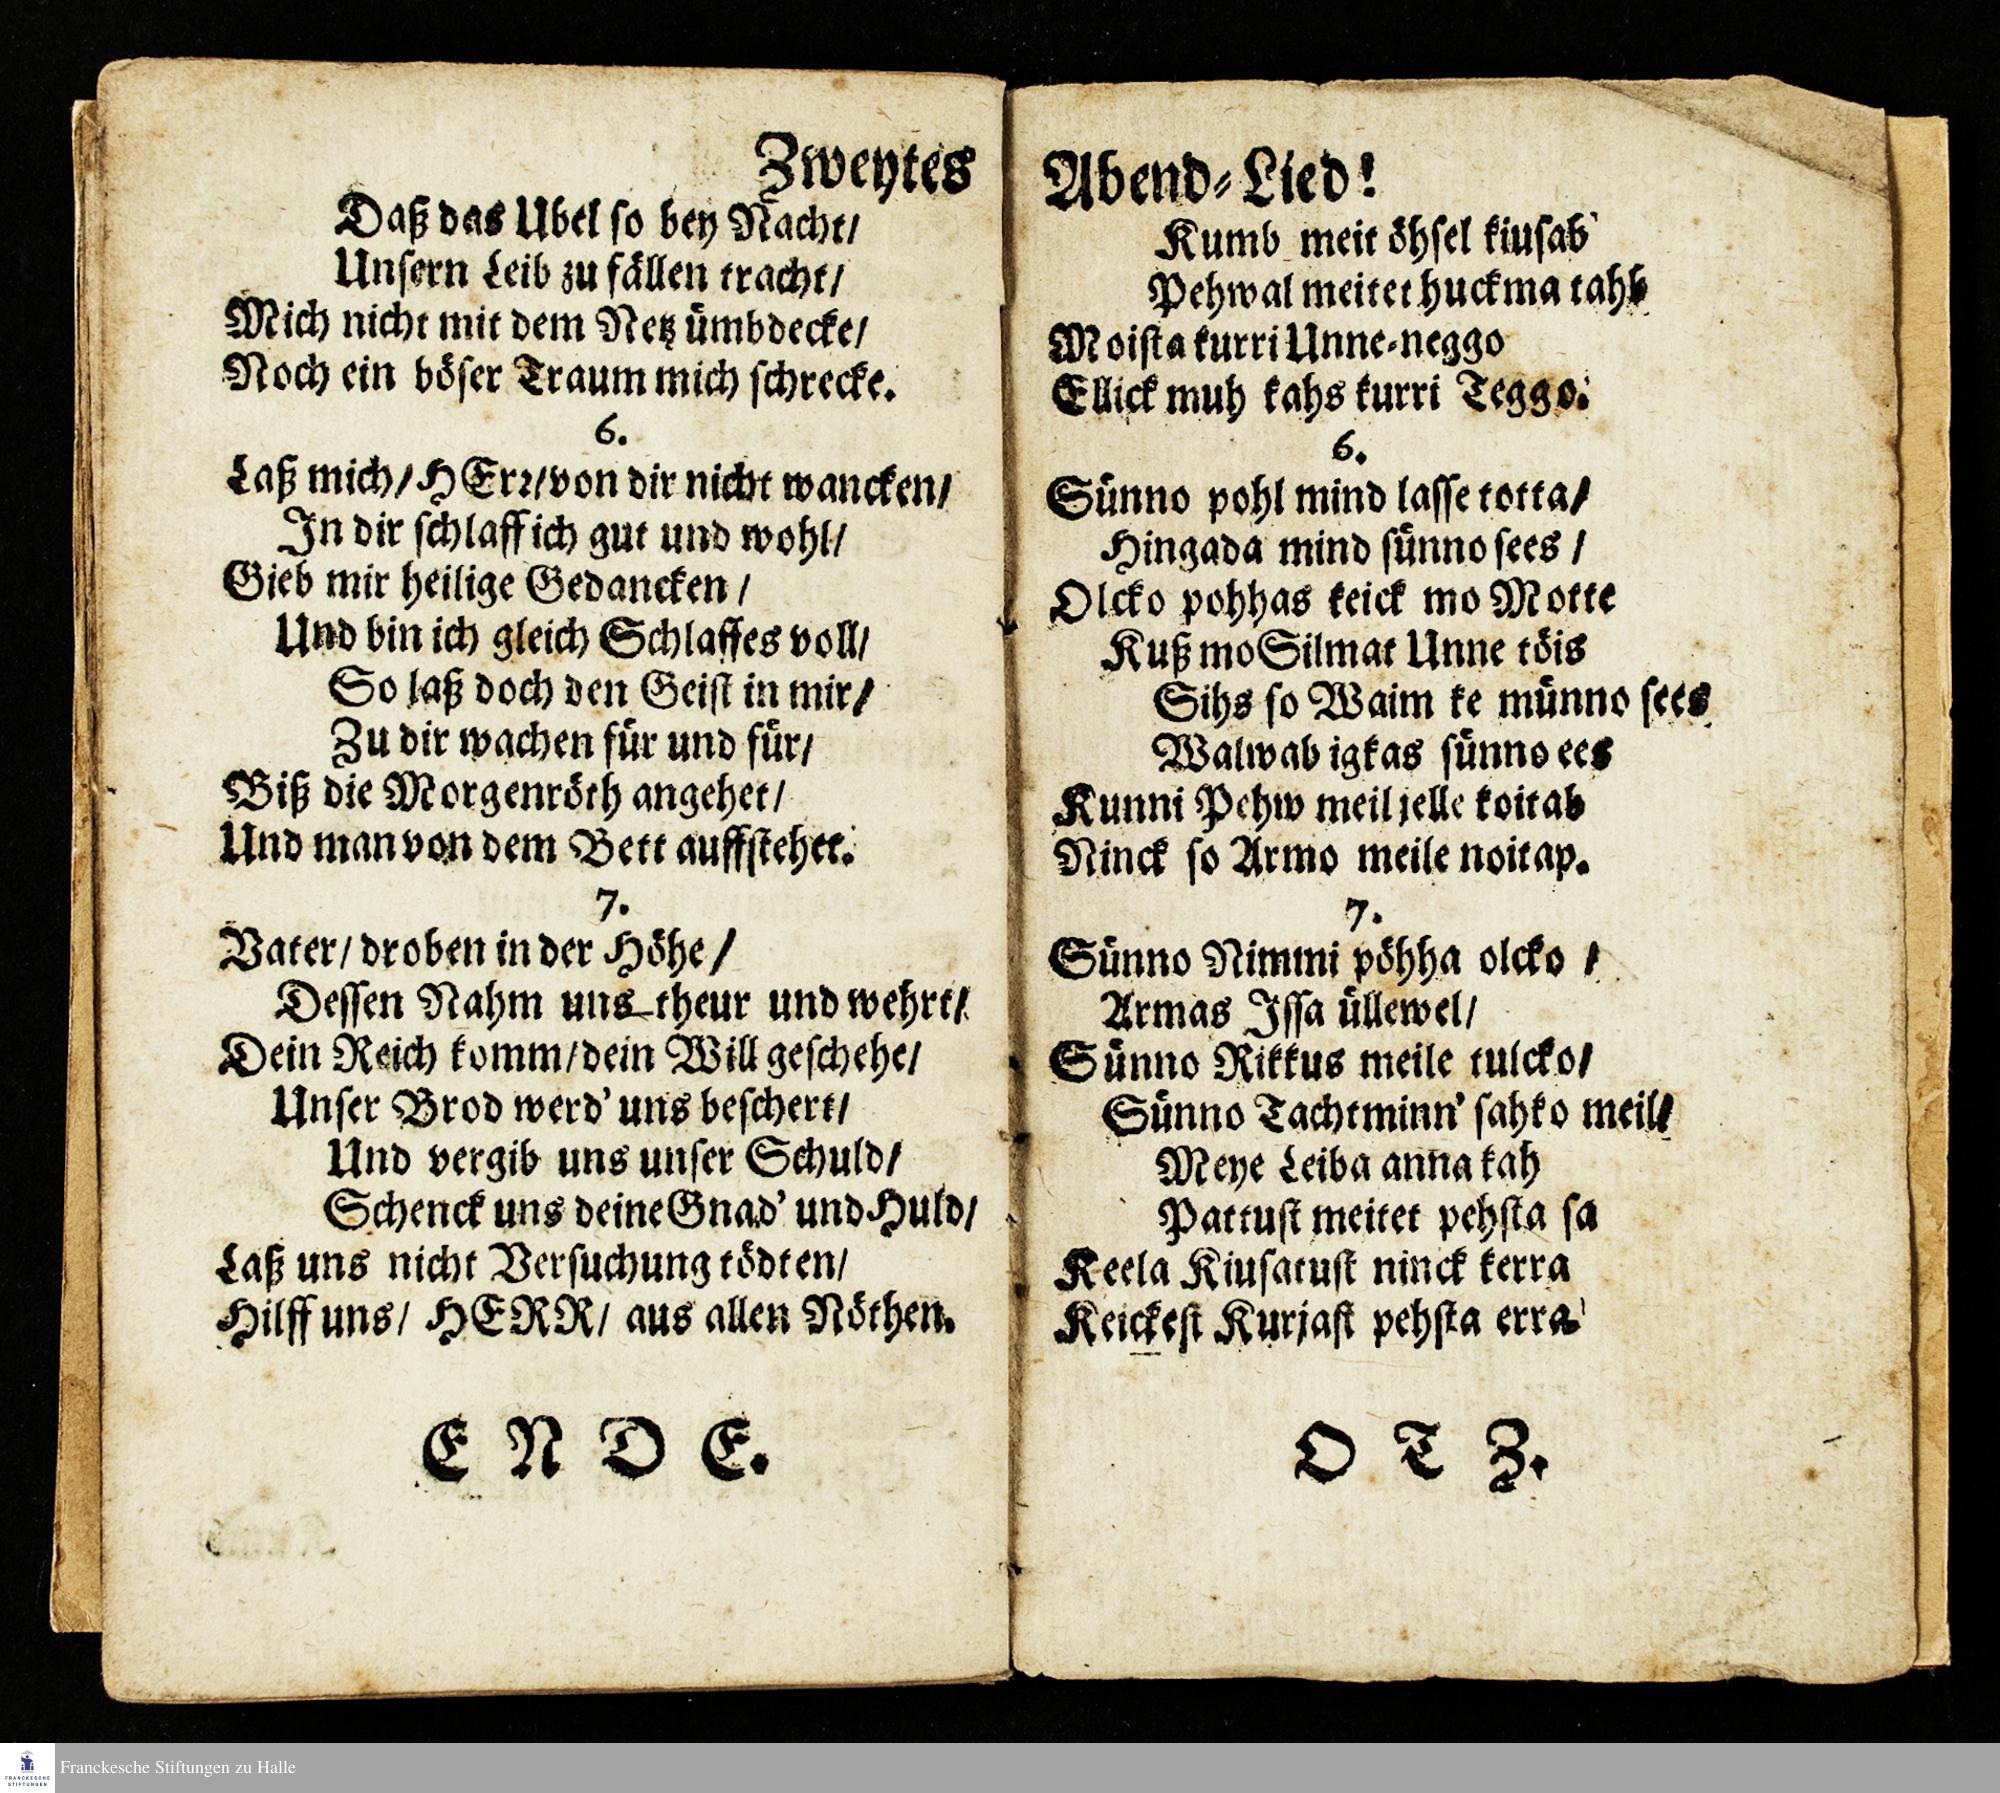 Zweytes
Daß das Ubel so bey Nacht/
Unsern Leib zu fällen tracht/
Mich nicht mit dem Netz ümbdecke/
Noch ein böser Traum mich schrecke.
6.
Laß mich/ HErr/ von dir nicht wancken/
In dir schlaff ich gut und wohl/
Gieb mir heilige Gedancken/
Und bin ich gleich Schlaffes voll/
So laß doch den Geist in mir/
Zu dir wachen für und für/
Biß die Morgenröth angehet/
Und man von dem Bett auffstehet.
7.
Vater/ droben in der Höhe/
Dessen Nahm uns theur und wehrt/
Dein Reich komm/ dein Will geschehe/
Unser Brod werd' uns beschert/
Und vergib uns unser Schuld/
Schenck uns deine Gnad' und Huld/
Laß uns nicht Versuchung tödten/
Hilff uns/ HERR/ aus allen Nöthen.
ENDE.
Abend-Lied!
Kumb meit öhsel kiusab
Pehwal meitet huckma tahb
Moista kurri Unne-neggo
Ellick muh kahs kurri Teggo.
6.
Sünno pohl mind lasse totta/
Hingada mind sünno sees/
Olcko pohhas keick mo Motte
Kuß mo Silmat Unne töis
Sihs so Waim ke münno sees
Walwab igkas sünno ees
Kunni Pehw meil jelle koitab
Ninck so Armo meile noitap.
7.
Sünno Nimmi pöhha olcko/
Armas Issa üllewel/
Sünno Rikkus meile tulcko/
Sünno Tachtminn' sahko meil/
Meye Leiba anna kah
Pattust meitet pehsta sa
Keela Kiusatust ninck kerra
Keickest Kurjast pehsta erra
OTZ.
FRANCKESCHE
STIFTUNGEN
Franckesche Stiftungen zu Halle